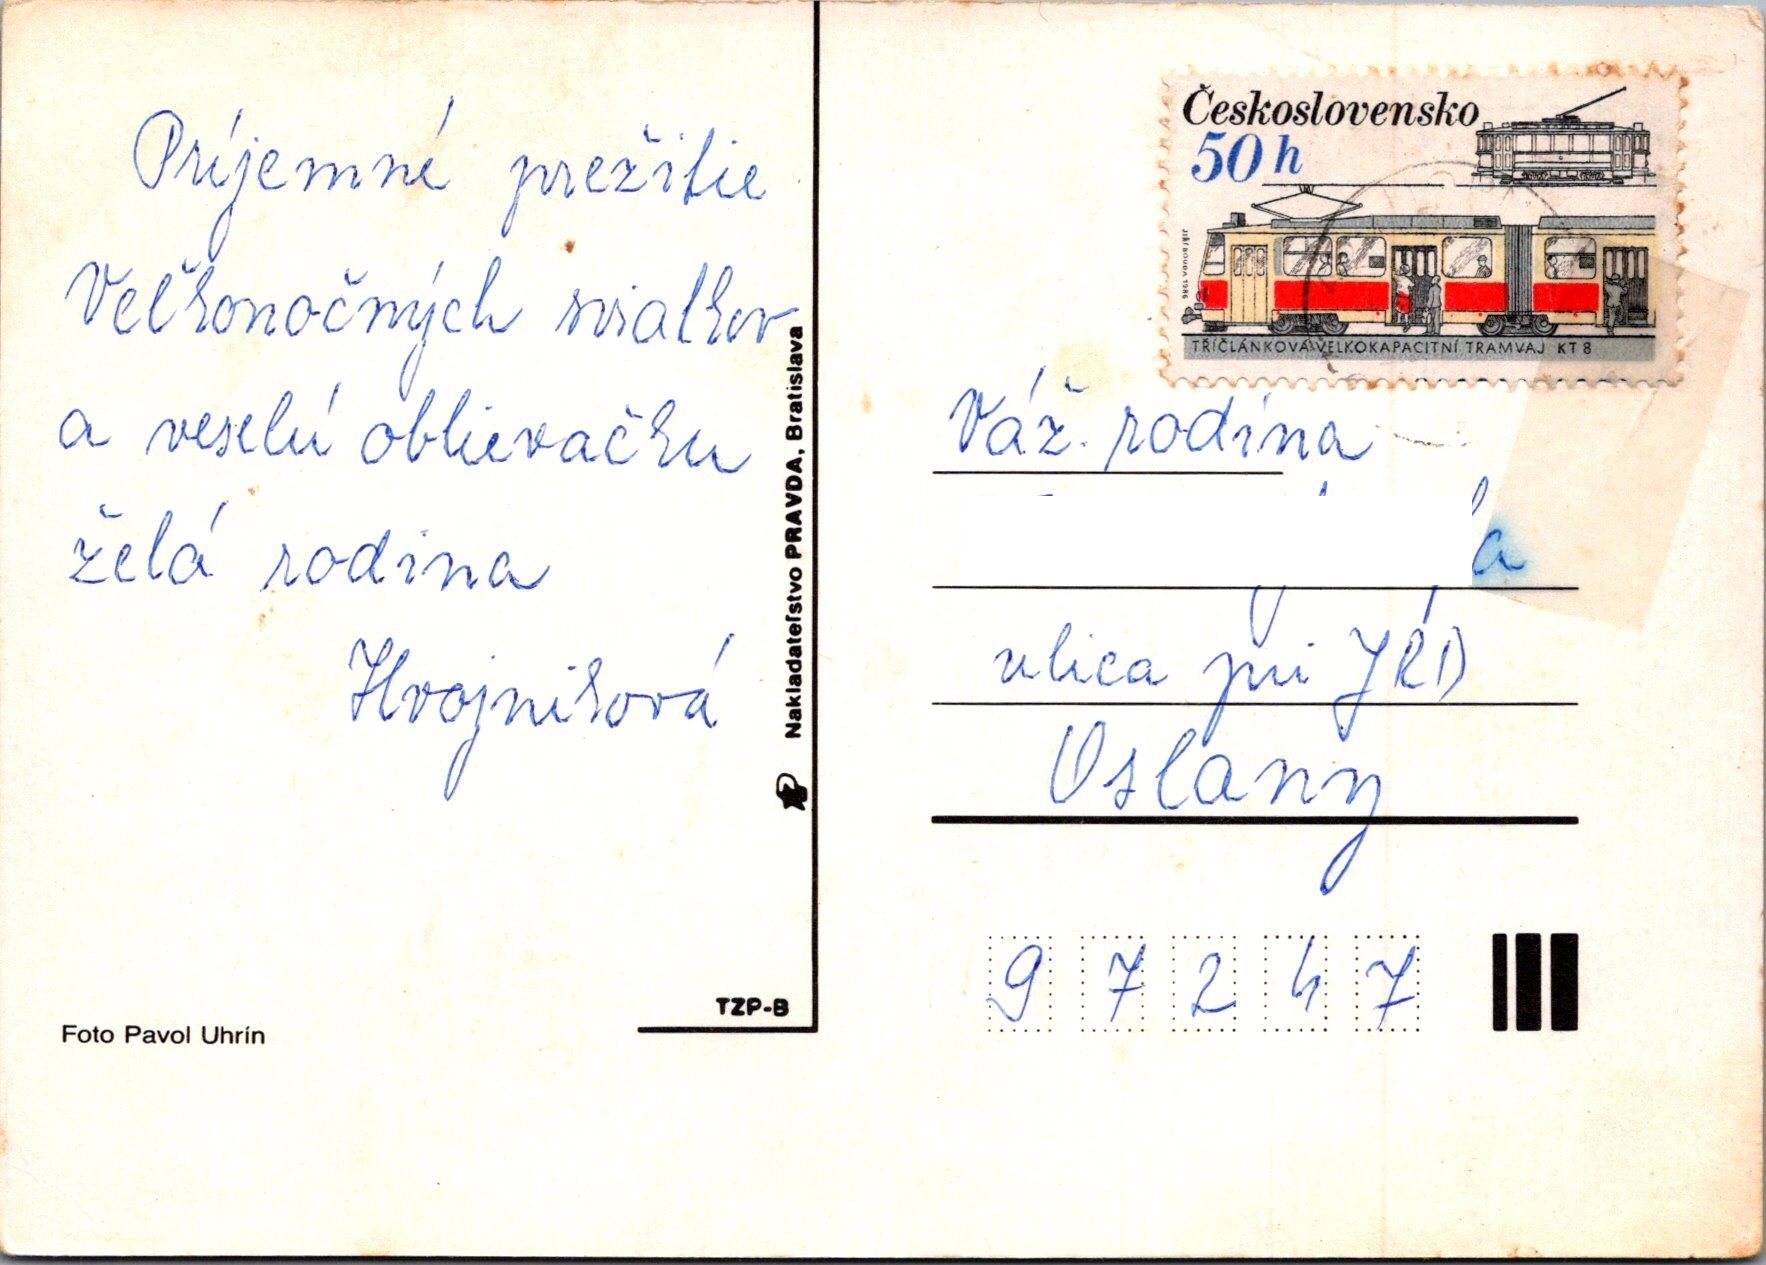 Príjemné prežitie
Veľkonočných sviatkov
a veselú oblievačku
želá rodina
Hvojniková
Foto Pavol Uhrín
TZP-B
Nakladateľstvo PRAVDA, Bratislava
Československo
50 h
JIŘÍ BOUDA 1986
TŘÍČLÁNKOVÁ VELKOKAPACITNÍ TRAMVAJ KT 8
Váž. rodina
ulica pri JRD
Oslany
97247